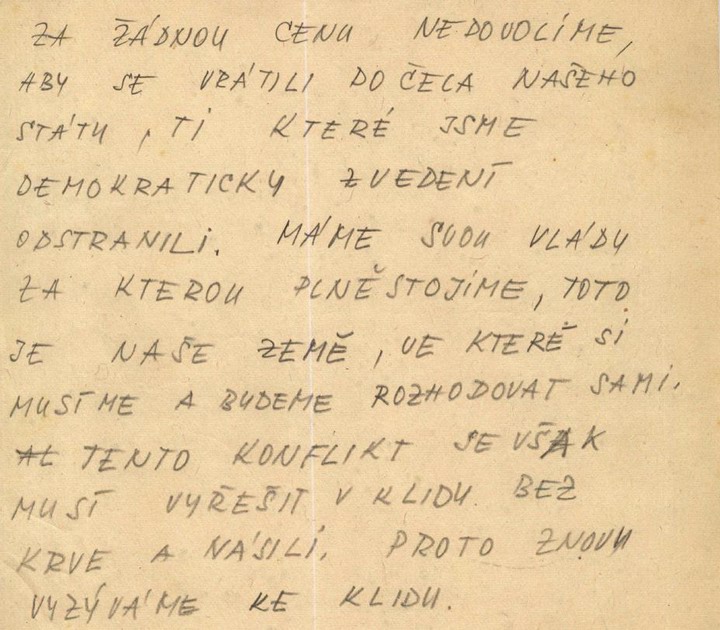 ZA ŽÁDNOU CENU NEDOVOLÍME,
ABY SE VRÁTILI DO ČELA NAŠEHO
STÁTU, TI KTERÉ JSME
DEMOKRATICKY ZVEDENÍ
ODSTRANILI. MÁME SVOU VLÁDU
ZA KTEROU PLNĚ STOJÍME, TOTO
JE NAŠE ZEMĚ, VE KTERÉ SI
MUSÍME A BUDEME ROZHODOVAT SAMI.
AL TENTO KONFLIKT SE VŠAK
MUSÍ VYŘEŠIT V KLIDU BEZ
KRVE A NÁSILÍ. PROTO ZNOVU
VYZÝVÁME KE KLIDU.